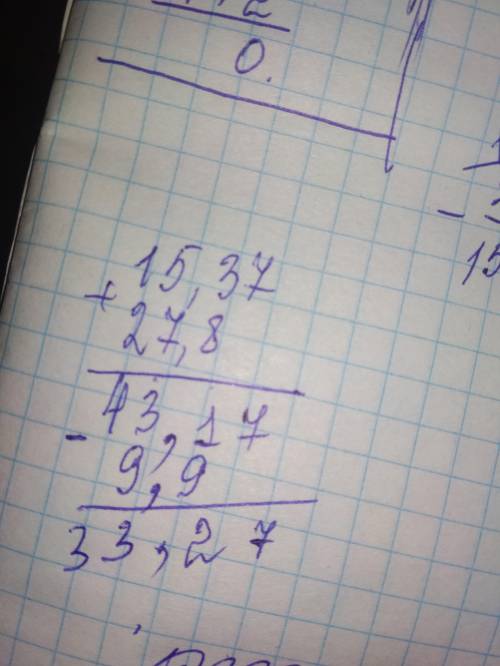 0.
15,37
+
27,8
43,17
-
9,9
33,27